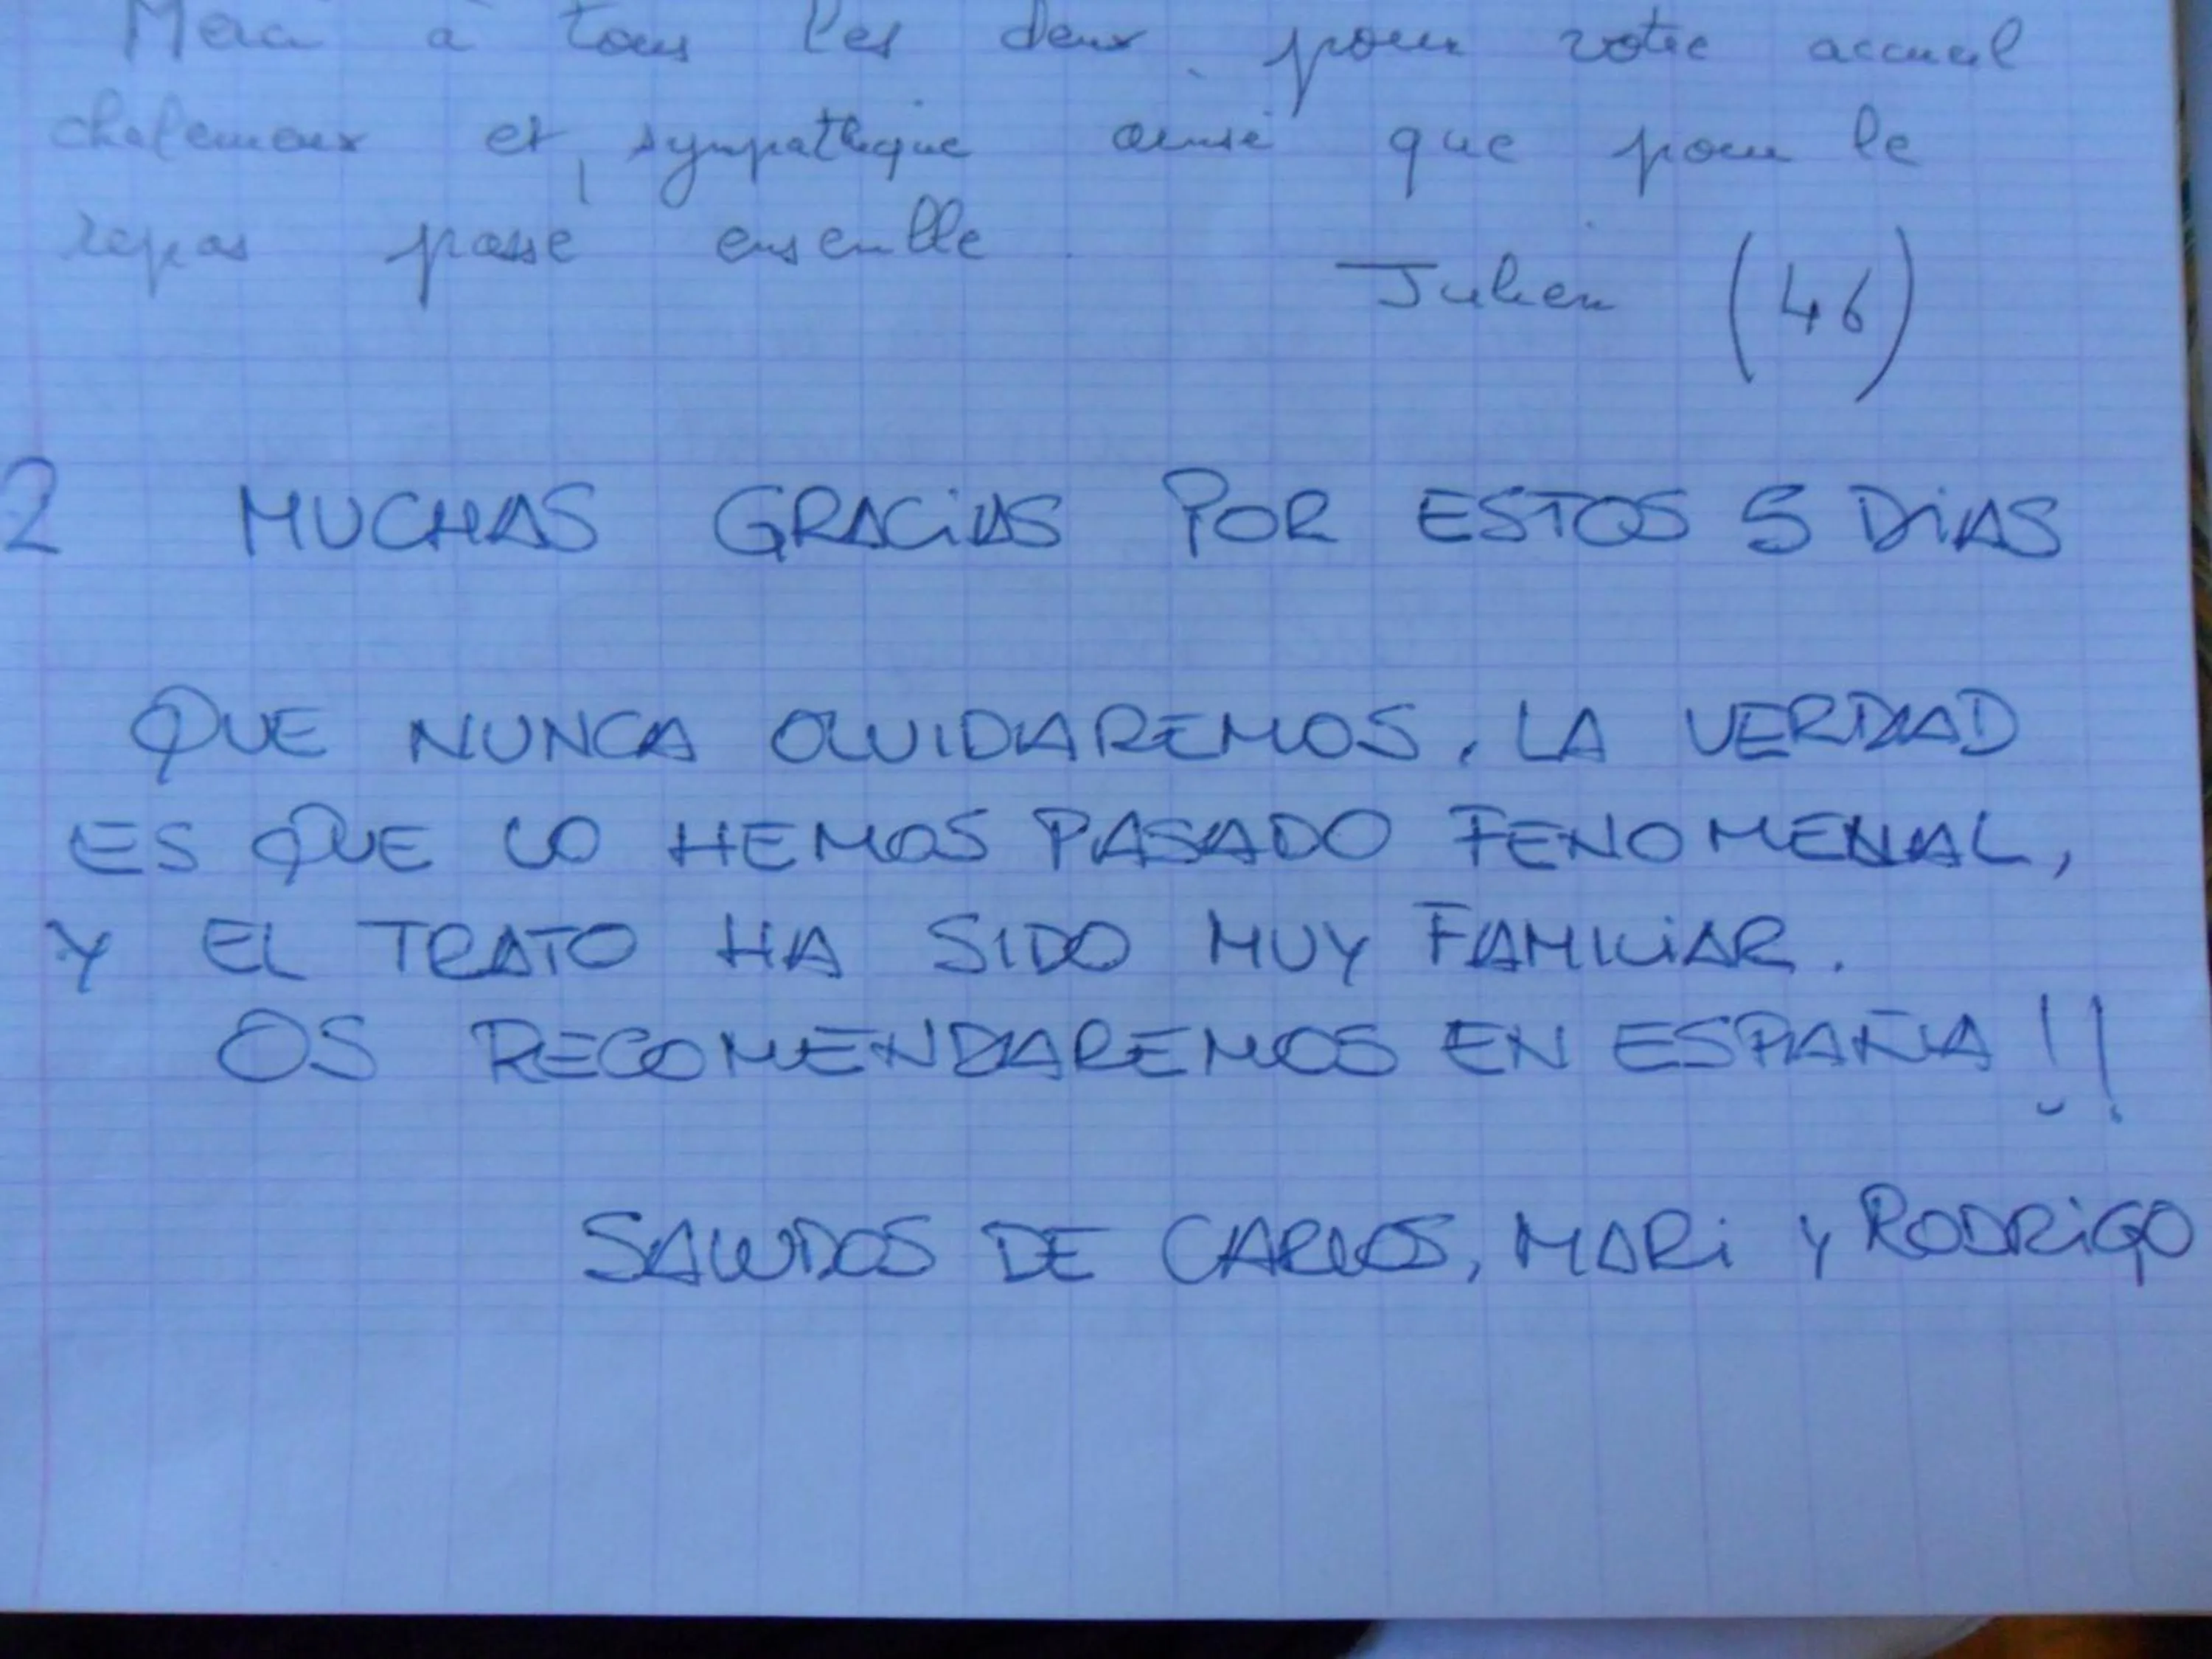 Merci à tous les deux pour votre accueil
chaleureux et sympathique ainsi que pour le
repas passé ensemble.
Julien (46)
2 MUCHAS GRACIAS POR ESTOS 5 DIAS
QUE NUNCA OLVIDAREMOS. LA VERDAD
ES QUE LO HEMOS PASADO FENOMENAL,
Y EL TRATO HA SIDO MUY FAMILIAR.
OS RECOMENDAREMOS EN ESPAÑA!!
SALUDOS DE CARLOS, MARI Y RODRIGO